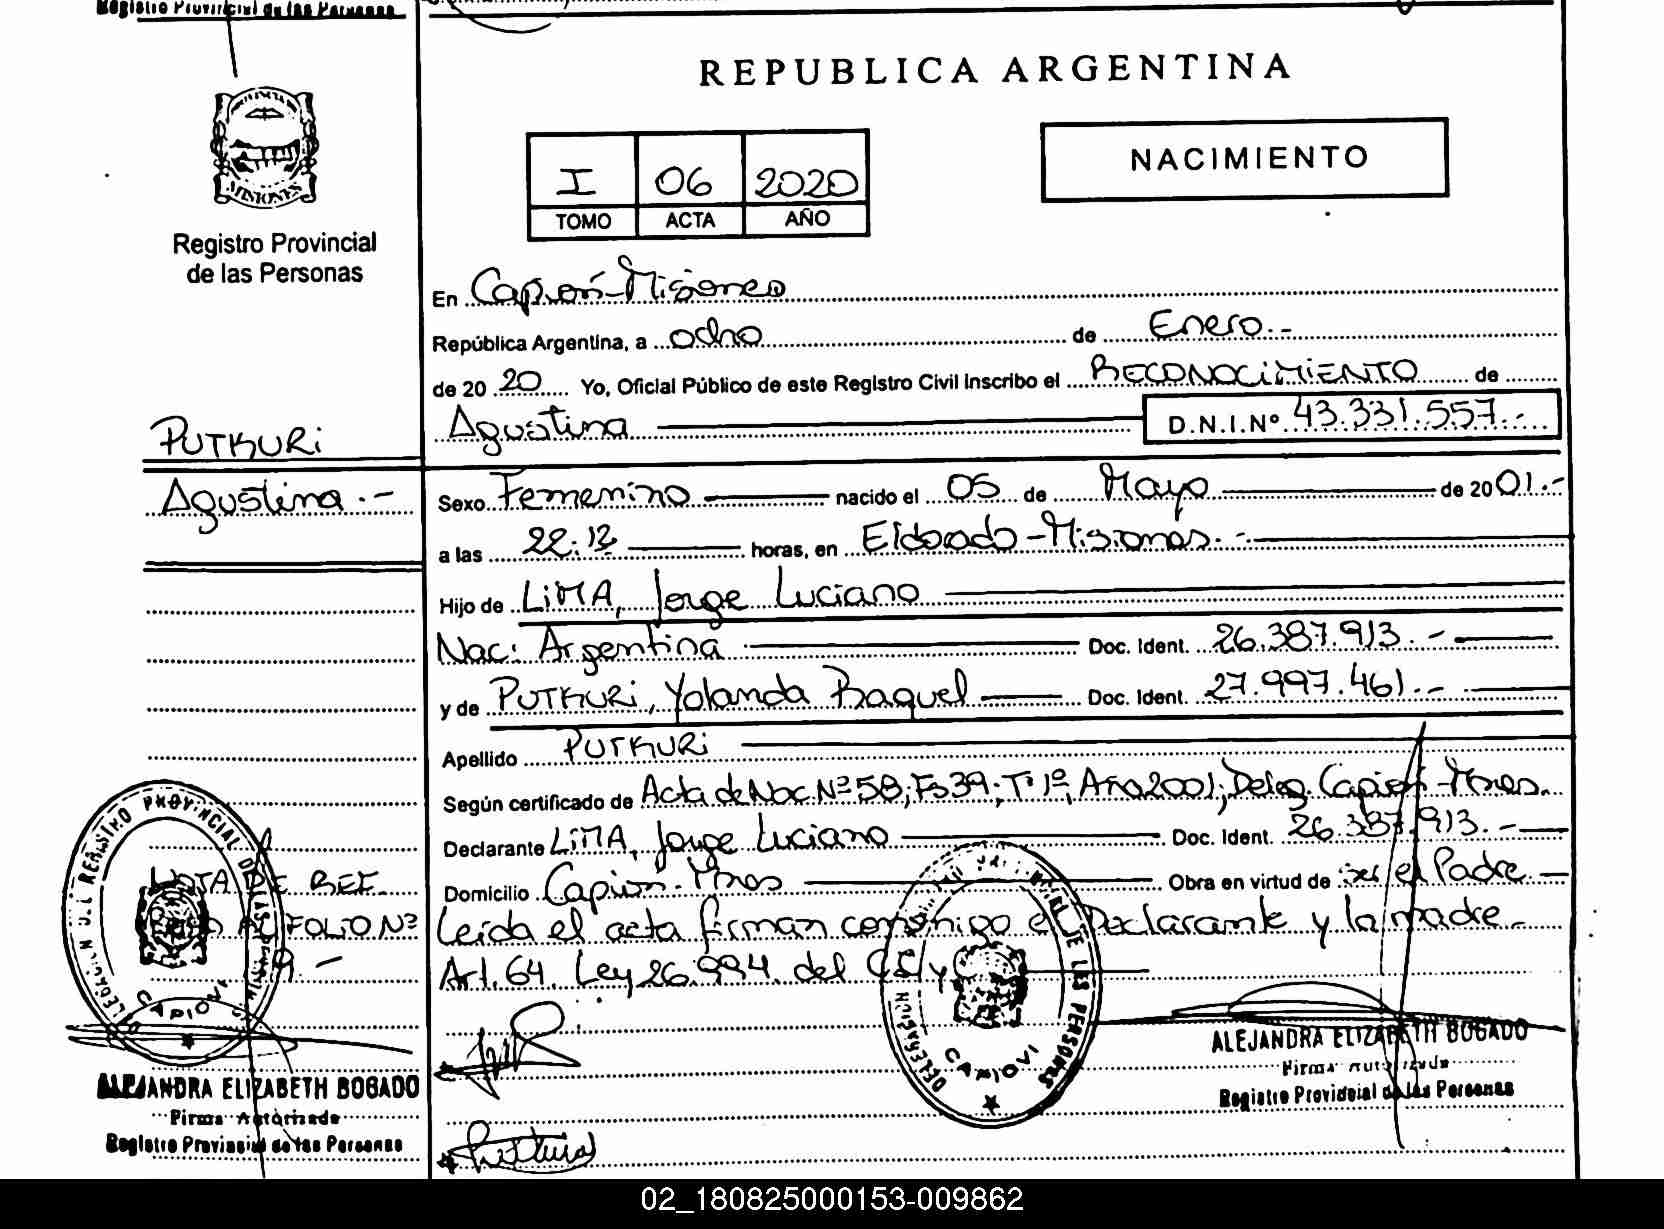 Registro Provincial de las Personas
REPUBLICA ARGENTINA
MISIONES
Registro Provincial
de las Personas
I 06 2020
TOMO ACTA AÑO
NACIMIENTO
En Capioví-Misiones
República Argentina, a ocho de Enero.-
de 20 20 Yo, Oficial Público de este Registro Civil Inscribo el RECONOCIMIENTO de
Agustina D.N.I.Nº 43.331.557.-
PUTKURI
Agustina.-
Sexo Femenino nacido el 05 de Mayo de 20 01.-
a las 22:12 horas, en Eldorado-Misiones.-
Hijo de LIMA, Jorge Luciano
Nac: Argentina Doc. Ident. 26.387.913.-
y de PUTKURI, Yolanda Raquel Doc. Ident. 27.997.461.-
Apellido PUTKURI
Según certificado de Acta de Nac. Nº 58; Fº 39; Tº 1º, Año 2001; Deleg. Capioví-Mnes.
Declarante LIMA, Jorge Luciano Doc. Ident. 26.387.913.-
Domicilio Capioví-Mnes Obra en virtud de ser el Padre.
Leída el acta firman conmigo el Declarante y la madre.
Art. 64. Ley 26.994. del CC y
NOTA DE REF.
AL FOLIO Nº
9.-
REGISTRO PROVINCIAL DE LAS PERSONAS
DELEGACION
CAPIOVI
ALEJANDRA ELIZABETH BOGADO
Firma Autorizada
Registro Provincial de las Personas
DELEGACION
DE LAS PERSONAS
CAPIOVI
ALEJANDRA ELIZABETH BOGADO
Firma Autorizada
Registro Provincial de las Personas
02_180825000153-009862